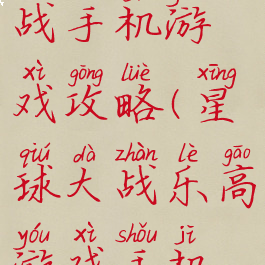 战手机游
xì gōng lüè xīng
戏攻略(星
qiú dà zhàn lè gāo
球大战乐高
yóu xì shǒu jī
游戏手机